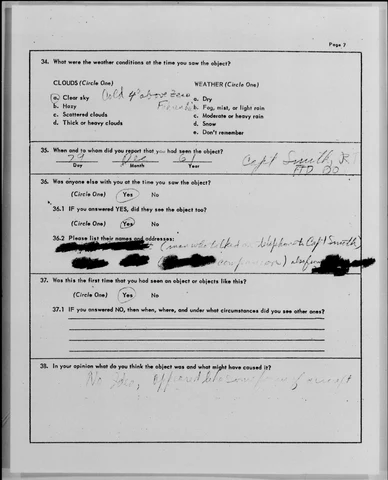 Page 7
34. What were the weather conditions at the time you saw the object?
CLOUDS (Circle One)
WEATHER (Circle One)
Cold 4° above zero
a. Clear sky
b. Hazy
c. Scattered clouds
d. Thick or heavy clouds
a. Dry
b. Fog, mist, or light rain
c. Moderate or heavy rain
d. Snow
e. Don't remember
35. When and to whom did you report that you had seen the object?
29 Dec 61 Capt Smith,
Day Month Year
36. Was anyone else with you at the time you saw the object?
(Circle One) Yes No
36.1 IF you answered YES, did they see the object too?
(Circle One) Yes No
36.2 Please list their names and addresses:
(man who talked on telephone to Capt Smith)
37. Was this the first time that you had seen an object or objects like this?
(Circle One) Yes No
37.1 IF you answered NO, then when, where, and under what circumstances did you see other ones?
38. In your opinion what do you think the object was and what might have caused it?
No Idea, appeared like some form of aircraft